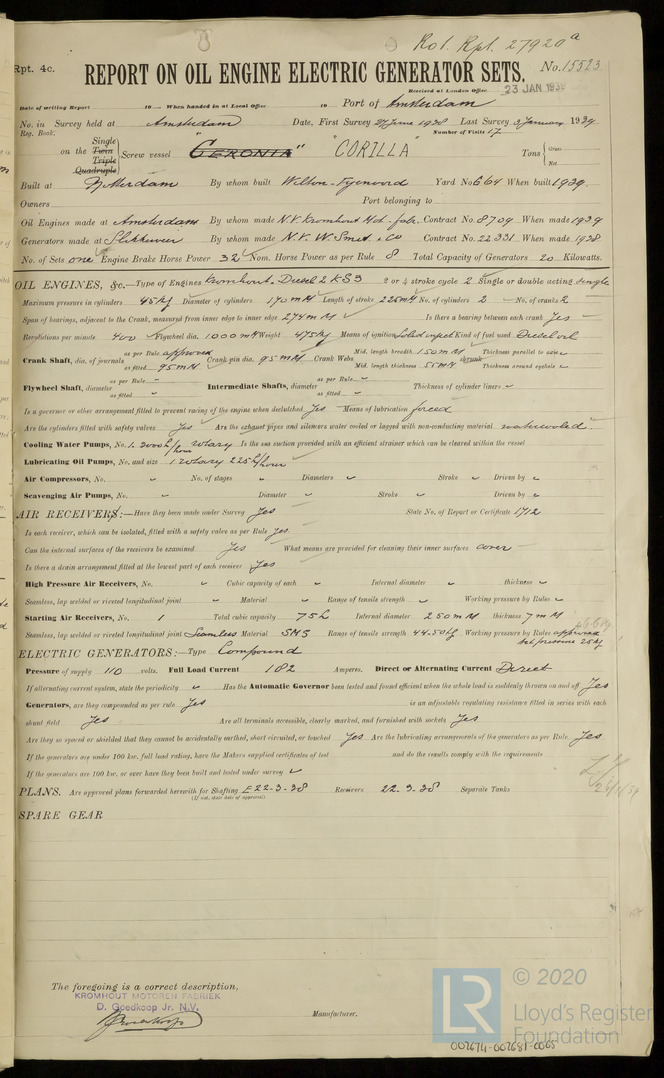 Rot. Rpt. 27920a
Rpt. 4c.
REPORT ON OIL ENGINE ELECTRIC GENERATOR SETS. No. 15523
Received at London Office 23 JAN 1939
Date of writing Report 19 When handed in at Local Office 19 Port of Amsterdam
No. in Survey held at Amsterdam Date, First Survey 27 June 1938 Last Survey 3 January 1939
Reg. Book. Number of Visits 17
on the Single Twin Triple Quadruple Screw vessel "GERONIA" "CORILLA" Tons Gross Net
Built at Rotterdam By whom built Wilton-Fyenoord Yard No. 664 When built 1939
Owners Port belonging to
Oil Engines made at Amsterdam By whom made N.V. Kromhout Mot. fabr. Contract No. 8709 When made 1939
Generators made at Slikkerveer By whom made N.V. W. Smit & Co Contract No. 22331 When made 1938
No. of Sets one Engine Brake Horse Power 32 Nom. Horse Power as per Rule 8 Total Capacity of Generators 20 Kilowatts.
OIL ENGINES, &c. Type of Engines Kromhout-Diesel 2 KS3 2 or 4 stroke cycle 2 Single or double acting single
Maximum pressure in cylinders 45 kg Diameter of cylinders 170 mM Length of stroke 225 mM No. of cylinders 2 No. of cranks 2
Span of bearings, adjacent to the Crank, measured from inner edge to inner edge 274 mM Is there a bearing between each crank Yes
Revolutions per minute 400 Flywheel dia. 1000 mM Weight 475 kg Means of ignition Solid inject Kind of fuel used Diesel oil
Crank Shaft, dia. of journals as per Rule approved as fitted 95 mM Crank pin dia. 95 mM Crank Webs Mid. length breadth 150 mM Mid. length thickness 55 mM shrunk Thickness parallel to axis Thickness around eyehole
Flywheel Shaft, diameter as per Rule as fitted Intermediate Shafts, diameter as per Rule as fitted Thickness of cylinder liners
Is a governor or other arrangement fitted to prevent racing of the engine when declutched Yes Means of lubrication forced
Are the cylinders fitted with safety valves Yes Are the exhaust pipes and silencers water cooled or lagged with non-conducting material watercooled
Cooling Water Pumps, No. 1. 3000 l/hour rotary Is the sea suction provided with an efficient strainer which can be cleared within the vessel
Lubricating Oil Pumps, No. and size 1 rotary 225 l/hour
Air Compressors, No. No. of stages Diameters Stroke Driven by
Scavenging Air Pumps, No. Diameter Stroke Driven by
AIR RECEIVERS:—Have they been made under Survey Yes State No. of Report or Certificate 1712
Is each receiver, which can be isolated, fitted with a safety valve as per Rule Yes
Can the internal surfaces of the receivers be examined Yes What means are provided for cleaning their inner surfaces cover
Is there a drain arrangement fitted at the lowest part of each receiver Yes
High Pressure Air Receivers, No. Cubic capacity of each Internal diameter thickness
Seamless, lap welded or riveted longitudinal joint Material Range of tensile strength Working pressure by Rules
Starting Air Receivers, No. 1 Total cubic capacity 75 l Internal diameter 250 mM thickness 7 mM
Seamless, lap welded or riveted longitudinal joint Seamless Material SMS Range of tensile strength 44.50 kg Working pressure by Rules approved
pressure 25 kg
ELECTRIC GENERATORS:—Type Compound
Pressure of supply 110 volts. Full Load Current 182 Amperes. Direct or Alternating Current Direct
If alternating current system, state the periodicity Has the Automatic Governor been tested and found efficient when the whole load is suddenly thrown on and off Yes
Generators, are they compounded as per rule Yes is an adjustable regulating resistance fitted in series with each
shunt field Yes Are all terminals accessible, clearly marked, and furnished with sockets Yes
Are they so spaced or shielded that they cannot be accidentally earthed, short circuited, or touched Yes Are the lubricating arrangements of the generators as per Rule Yes
If the generators are under 100 kw. full load rating, have the Makers supplied certificates of test and do the results comply with the requirements
If the generators are 100 kw. or over have they been built and tested under survey
PLANS. Are approved plans forwarded herewith for Shafting E 22-3-38 Receivers 22.3-38 Separate Tanks
(If not, state date of approval)
SPARE GEAR
The foregoing is a correct description,
KROMHOUT MOTOREN FABRIEK
D. Goedkoop Jr. N.V.
Manufacturer.
LR
© 2020
Lloyd's Register
Foundation
002674-002681-0065